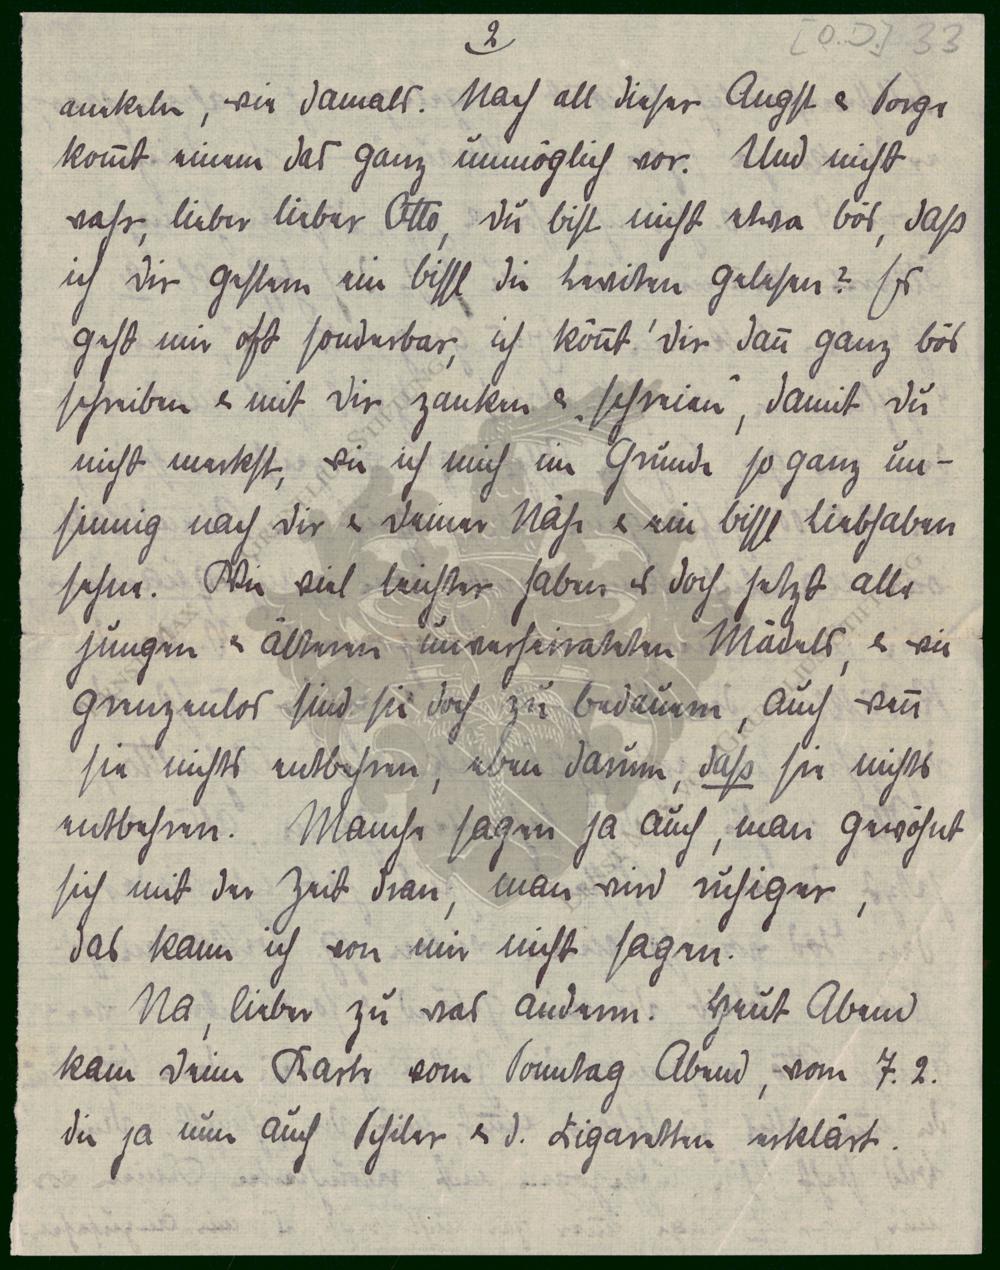 2
[O.D.] 33
anekeln, wie damals. Nach all dieser Angst & Sorge
kom̄t einem das ganz unmöglich vor. Und nicht
wahr, lieber lieber Otto, du bist nicht etwa bös, daß
ich dir gestern ein bissl die Leviten gelesen? Es
geht mir oft sonderbar, ich kön̄t' dir dan̄ ganz bös
schreiben & mit dir zanken & „schreien“, damit du
nicht merkst, wie ich mich im Grunde so ganz un-
sinnig nach dir & deiner Nähe & ein bissl Liebhaben
sehne. Wie viel leichter haben es doch jetzt alle
jungen & älteren unverheirateten Mädels, & wie
grenzenlos sind sie doch zu bedauern, auch wen̄
sie nichts entbehren, eben darum, daß sie nichts
entbehren. Manche sagen ja auch, man gewöhnt
sich mit der Zeit dran, man wird ruhiger,
das kann ich von mir nicht sagen.
Na, lieber zu was anderm. Heut Abend
kam deine Karte vom Sonntag Abend, vom 7. 2.
die ja nun auch Schiler & d. Zigaretten erklärt.